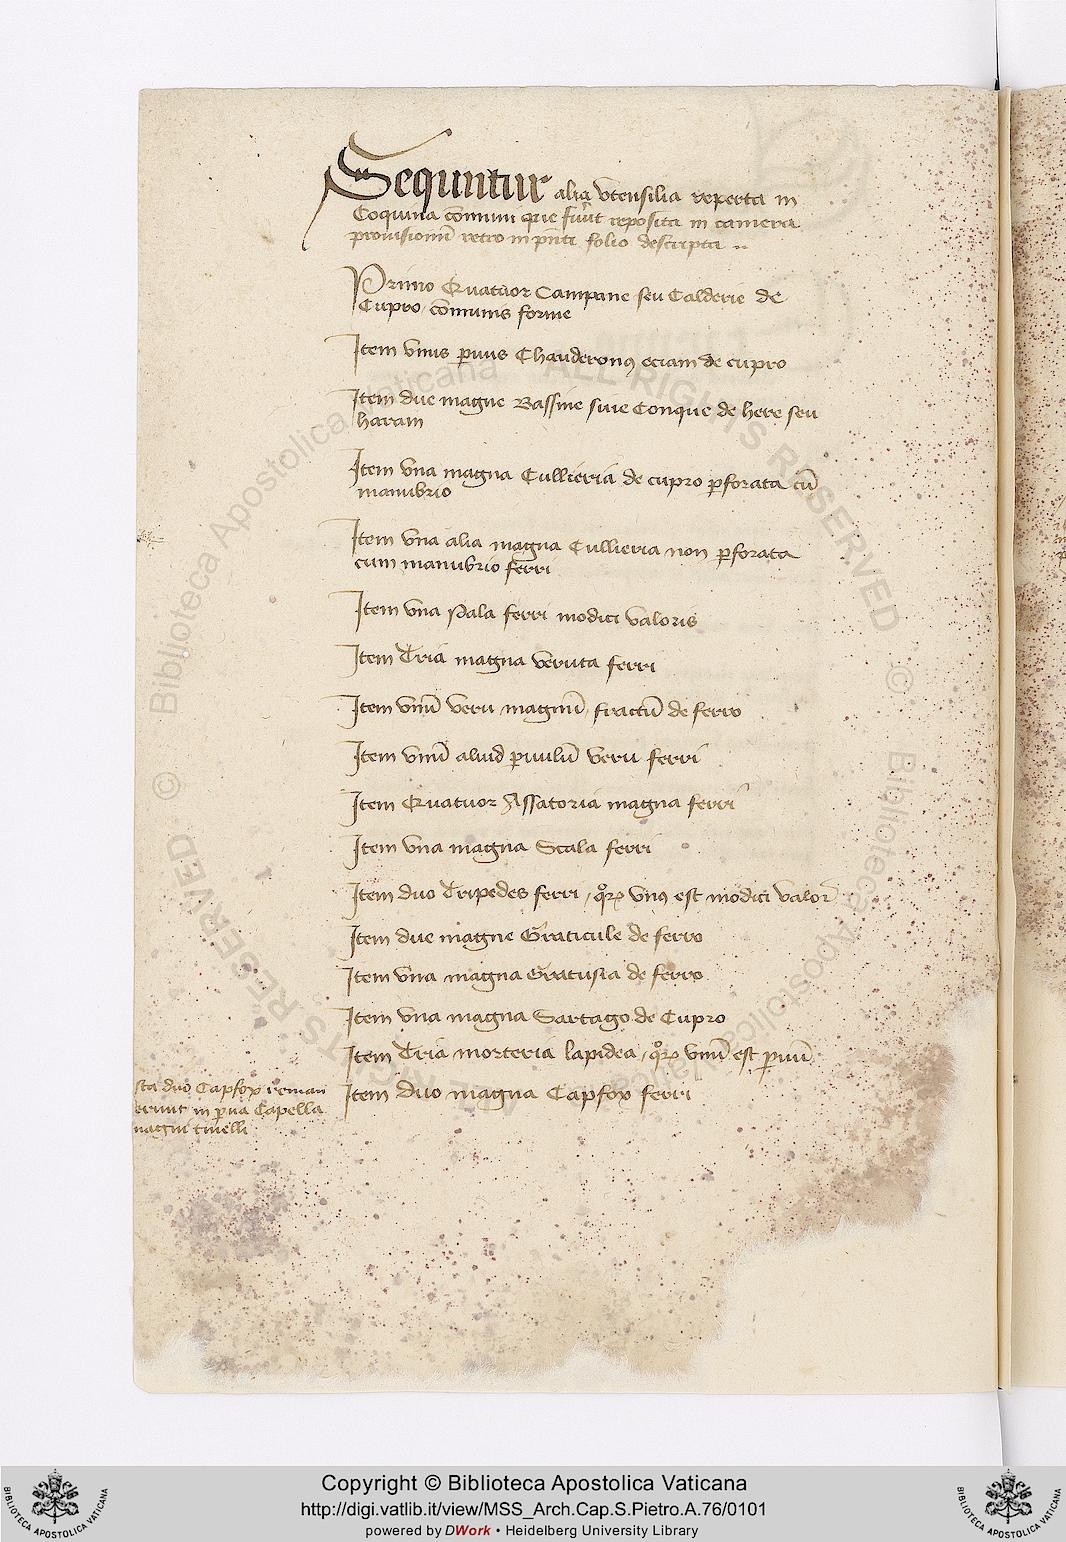 Sequntur alia vtensilia reperta in
Coquina cōmuni que fuer̄t reposita in camera
prouisionū retro in pn̄ti folio descripta ..
Primo Quatuor Campane seu Calderie de
Cupro cōmunis forme
Item vnus ꝑuus Chauderonꝰ eciam de cupro
Item due magne Bassine siue Conque de here seu
haram
Item vna magna Cullieria de cupro ꝑforata cū
manubrio
Item vna alia magna Cullieria non ꝑforata
cum manubrio ferri
Item vna Pala ferri modici valoris
Item Tria magna veruta ferri
Item vnū veru magnū fractū de ferro
Item vnū aliud ꝑuulū veru ferri
Item Quatuor Assatoria magna ferri
Item vna magna Scala ferri
Item duo Tripedes ferri / qͦrꝝ vnꝰ est modici valor
Item due magne Graticule de ferro
Item vna magna Gratusia de ferro
Item vna magna Sartago de Cupro
Item Tria morteria lapidea / qͦrꝝ vnū est ꝑuū
sta duo Capfox reman
erunt in ꝑua Capella
magni tinelli
Item duo magna Capfox ferri
© Biblioteca Apostolica Vaticana ALL RIGHTS RESERVED
© Biblioteca Apostolica Vaticana ALL RIGHTS RESERVED
BIBLIOTECA APOSTOLICA VATICANA
Copyright © Biblioteca Apostolica Vaticana
http://digi.vatlib.it/view/MSS_Arch.Cap.S.Pietro.A.76/0101
powered by DWork • Heidelberg University Library
BIBLIOTECA APOSTOLICA VATICANA